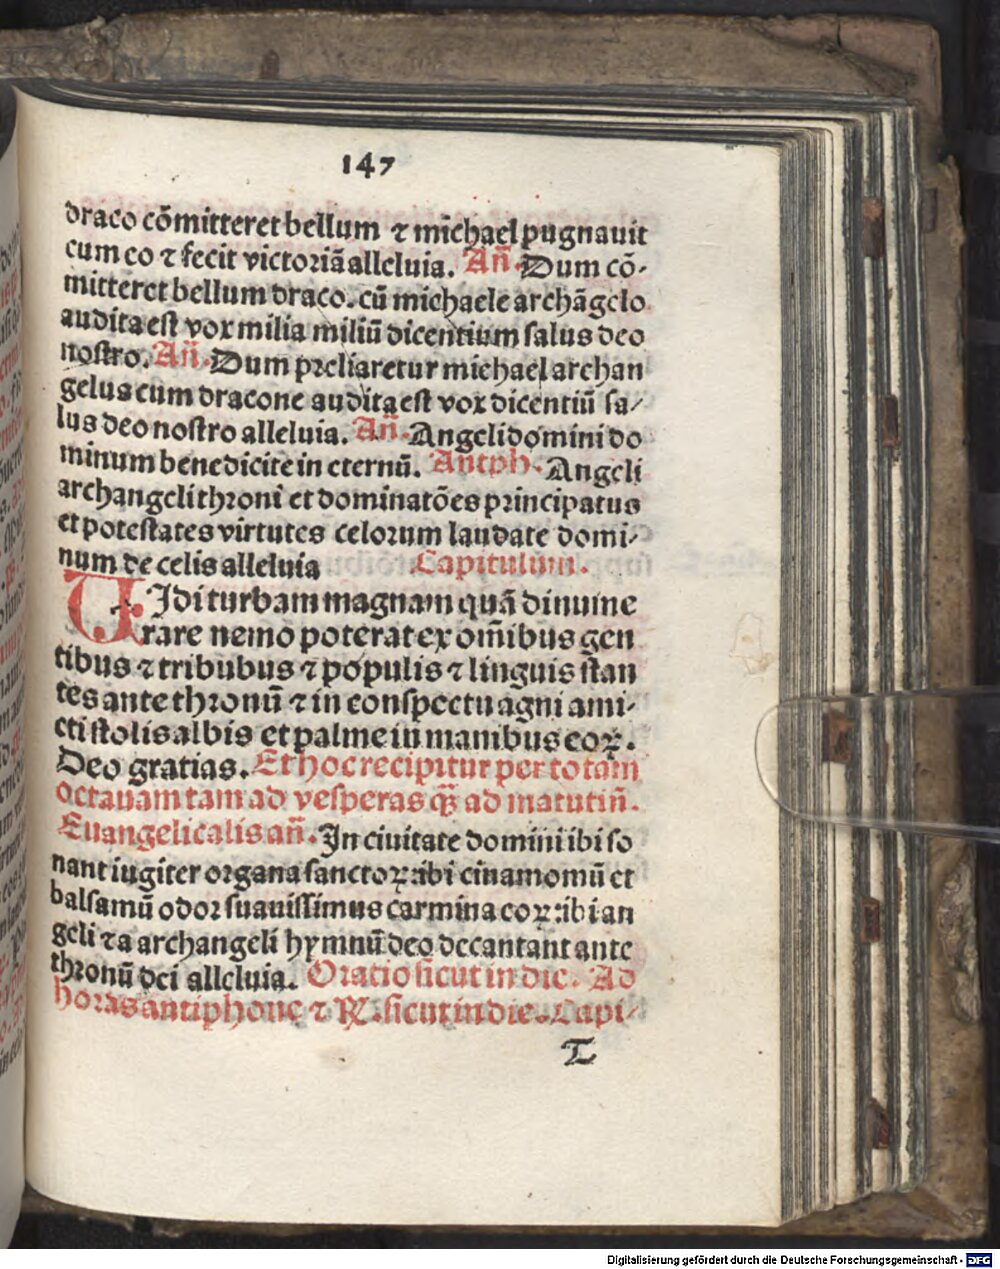 147
draco cōmitteret bellum ⁊ michael pugnauit
cum eo ⁊ fecit victoriā alleluia. Añ. Dum cō-
mitteret bellum draco. cū michaele archāgelo
audita est vox milia miliū dicentium salus deo
nostro. Añ. Dum preliaretur michael archan
gelus cum dracone audita est vox dicentiū sa/
lus deo nostro alleluia. Añ. Angeli domini do
minum benedicite in eternū. Antph. Angeli
archangeli throni et dominatōes principatus
et potestates virtutes celorum laudate domi/
num de celis alleluia Capitulum.
UIdi turbam magnam quā dinume
rare nemo poterat ex om̄ibus gen
tibus ⁊ tribubus ⁊ populis ⁊ linguis stan
tes ante thronū ⁊ in conspectu agni ami/
cti stolis albis et palme in manibus eoꝝ.
Deo gratias. Et hoc recipitur per totam
octauam tam ad vesperas qꝫ ad matutiñ.
Euangelicalis añ. In ciuitate domini ibi so
nant iugiter organa sanctoꝝ: ibi cinamomū et
balsamū odor suauissimus carmina eoꝝ: ibi an
geli ⁊ a archangeli hymnū deo decantant ante
thronū dei alleluia. Oratio sicut in die. Ad
horas antiphone ⁊ ℟. sicut in die. Capi/
T
Digitalisierung gefördert durch die Deutsche Forschungsgemeinschaft - DFG